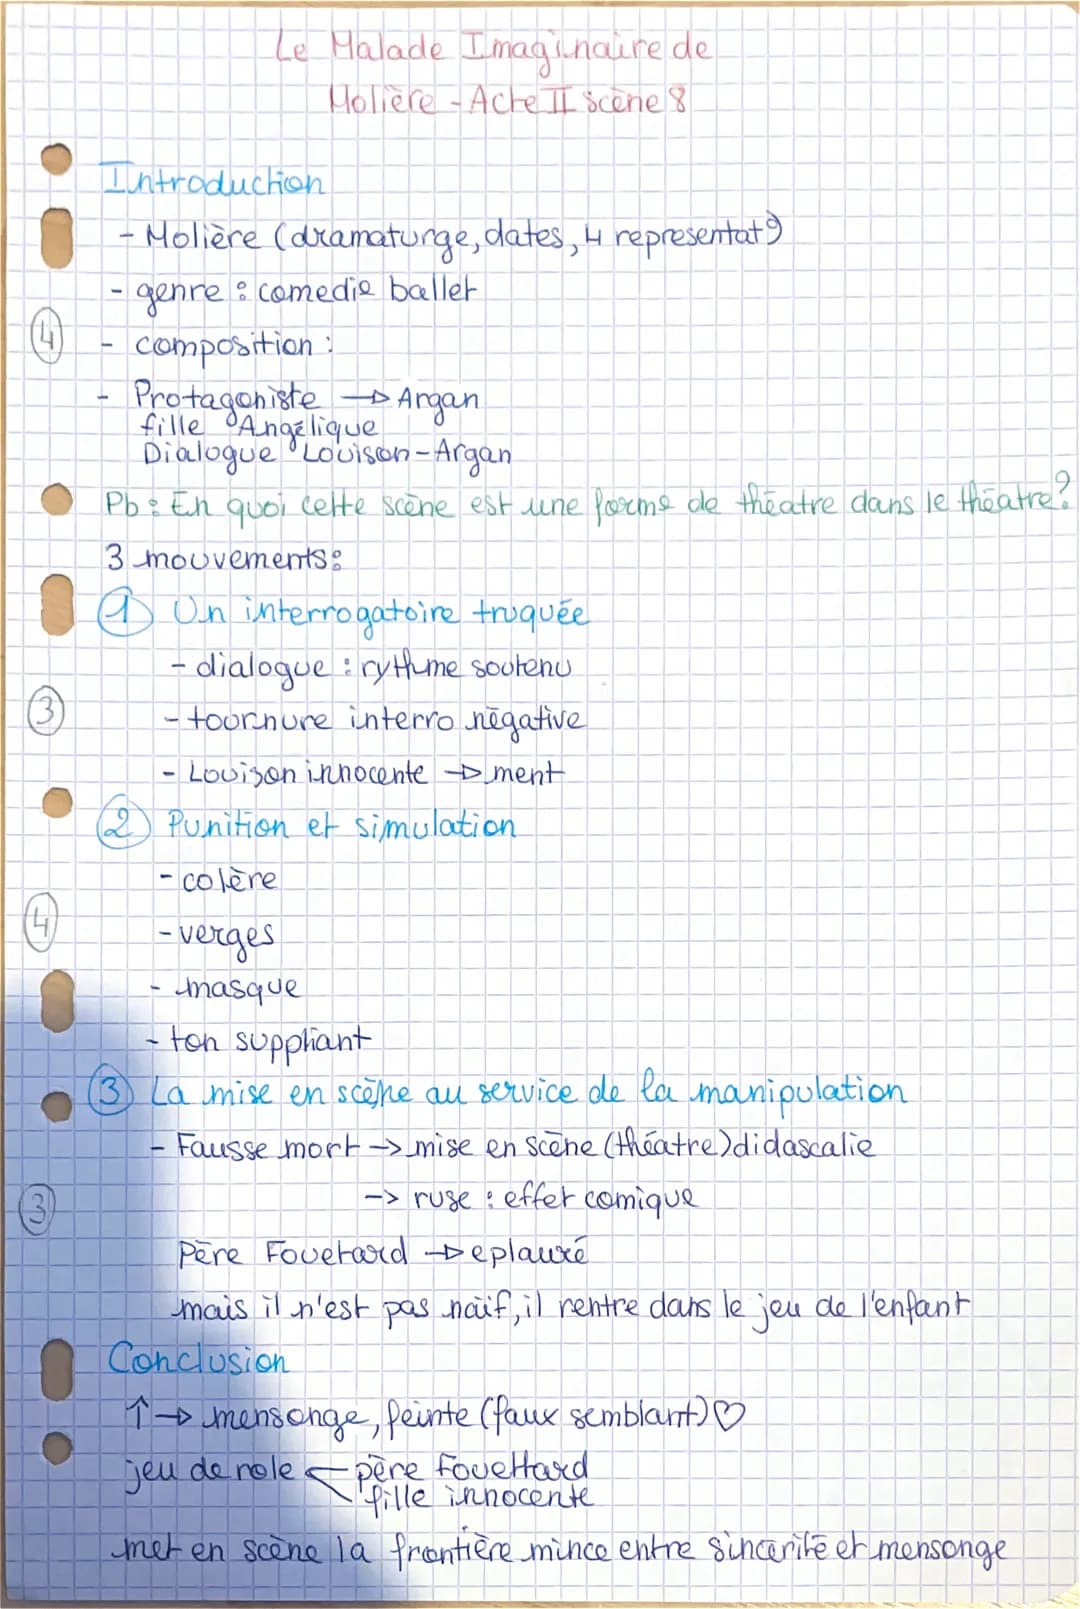 Le Malade Imaginaire de
Molière - Acte II scène 8
Introduction
- Molière (dramaturge, dates, 4 representat°)
- genre : comedie ballet
④ - composition :
- Protagoniste → Argan
fille Angélique
Dialogue Louison-Argan
Pb : En quoi cette scène est une forme de théatre dans le théatre?
3 mouvements :
① Un interrogatoire truquée
- dialogue : rythme soutenu
③ - tournure interro négative
- Louison innocente → ment
② Punition et simulation
- colère
④ - verges
- masque
- ton suppliant
③ La mise en scène au service de la manipulation
- Fausse mort -> mise en scène (théatre) didascalie
③ -> ruse : effet comique
Père Fouetard → eplauré
mais il n'est pas naïf, il rentre dans le jeu de l'enfant
Conclusion
↑ → mensonge, feinte (faux semblant) ♡
jeu de role ← père Fouettard
fille innocente
met en scène la frontière mince entre sincerité et mensonge